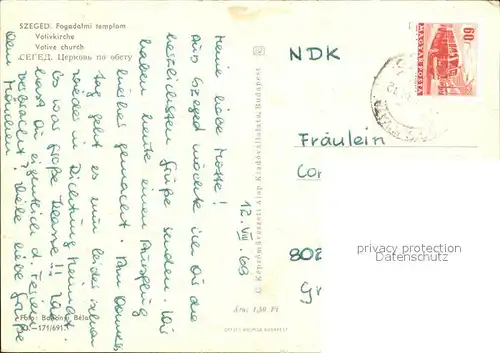 SZEGED. Fogadalmi templom
Votivkirche
Votive church
СЕГЕД. Церковь по обету
12. VIII. 69
Meine liebe Motte!
Aus Szeged möchte ich Dir die
herzlichsten Grüße senden. Wir
haben heute einen Ausflug
hierher gemacht. Am Donners
tag geht es nun leider schon
wieder in Richtung Heimat.
Es war große Klasse!! Wie
hast Du eigentlich d. Ferien
verbracht? Viele liebe Grüße
Dein
Foto: Balassy Béla
171/691
© Képzőművészeti Alap Kiadóvállalata, Budapest
Ára: 1,50 Ft
OFFSET
BUDAPEST
60f
MAGYAR POSTA
NDK
Fräulein
Cor
802
Gr
privacy protection
Datenschutz